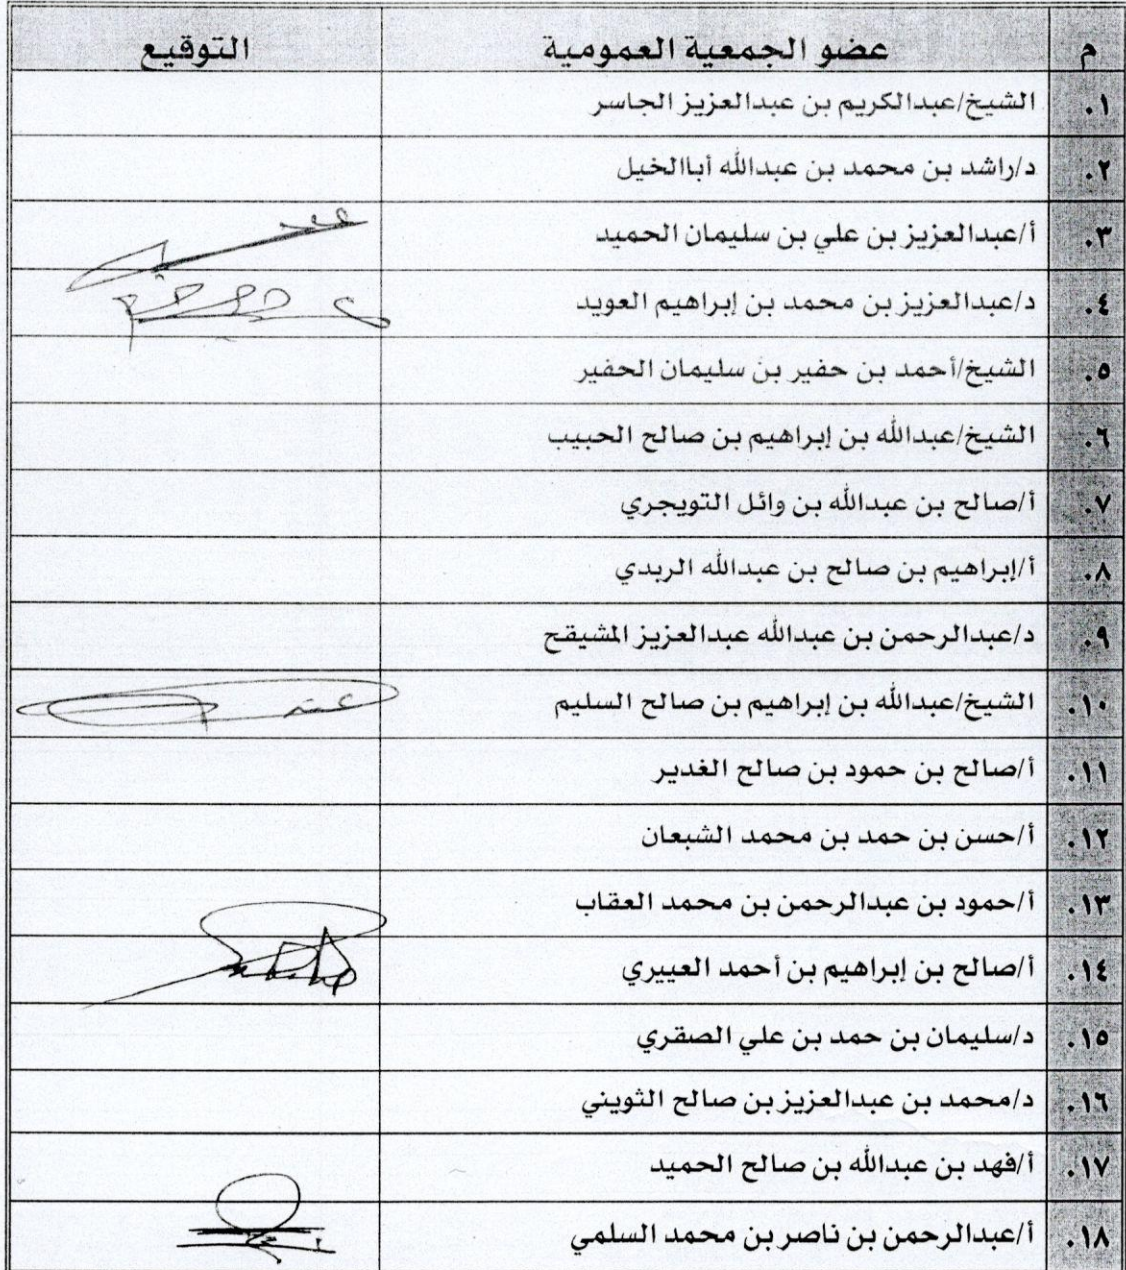 م عضو الجمعية العمومية التوقيع
١. الشيخ/عبدالكريم بن عبدالعزيز الجاسر
٢. د/راشد بن محمد بن عبدالله أباالخيل
٣. أ/عبدالعزيز بن علي بن سليمان الحميد
٤. د/عبدالعزيز بن محمد بن إبراهيم العويد
٥. الشيخ/أحمد بن حفير بن سليمان الحفير
٦. الشيخ/عبدالله بن إبراهيم بن صالح الحبيب
٧. أ/صالح بن عبدالله بن وائل التويجري
٨. أ/إبراهيم بن صالح بن عبدالله الربدي
٩. د/عبدالرحمن بن عبدالله عبدالعزيز المشيقح
١٠. الشيخ/عبدالله بن إبراهيم بن صالح السليم
١١. أ/صالح بن حمود بن صالح الغدير
١٢. أ/حسن بن حمد بن محمد الشبعان
١٣. أ/حمود بن عبدالرحمن بن محمد العقاب
١٤. أ/صالح بن إبراهيم بن أحمد العييري
١٥. د/سليمان بن حمد بن علي الصقري
١٦. د/محمد بن عبدالعزيز بن صالح الثويني
١٧. أ/فهد بن عبدالله بن صالح الحميد
١٨. أ/عبدالرحمن بن ناصر بن محمد السلمي